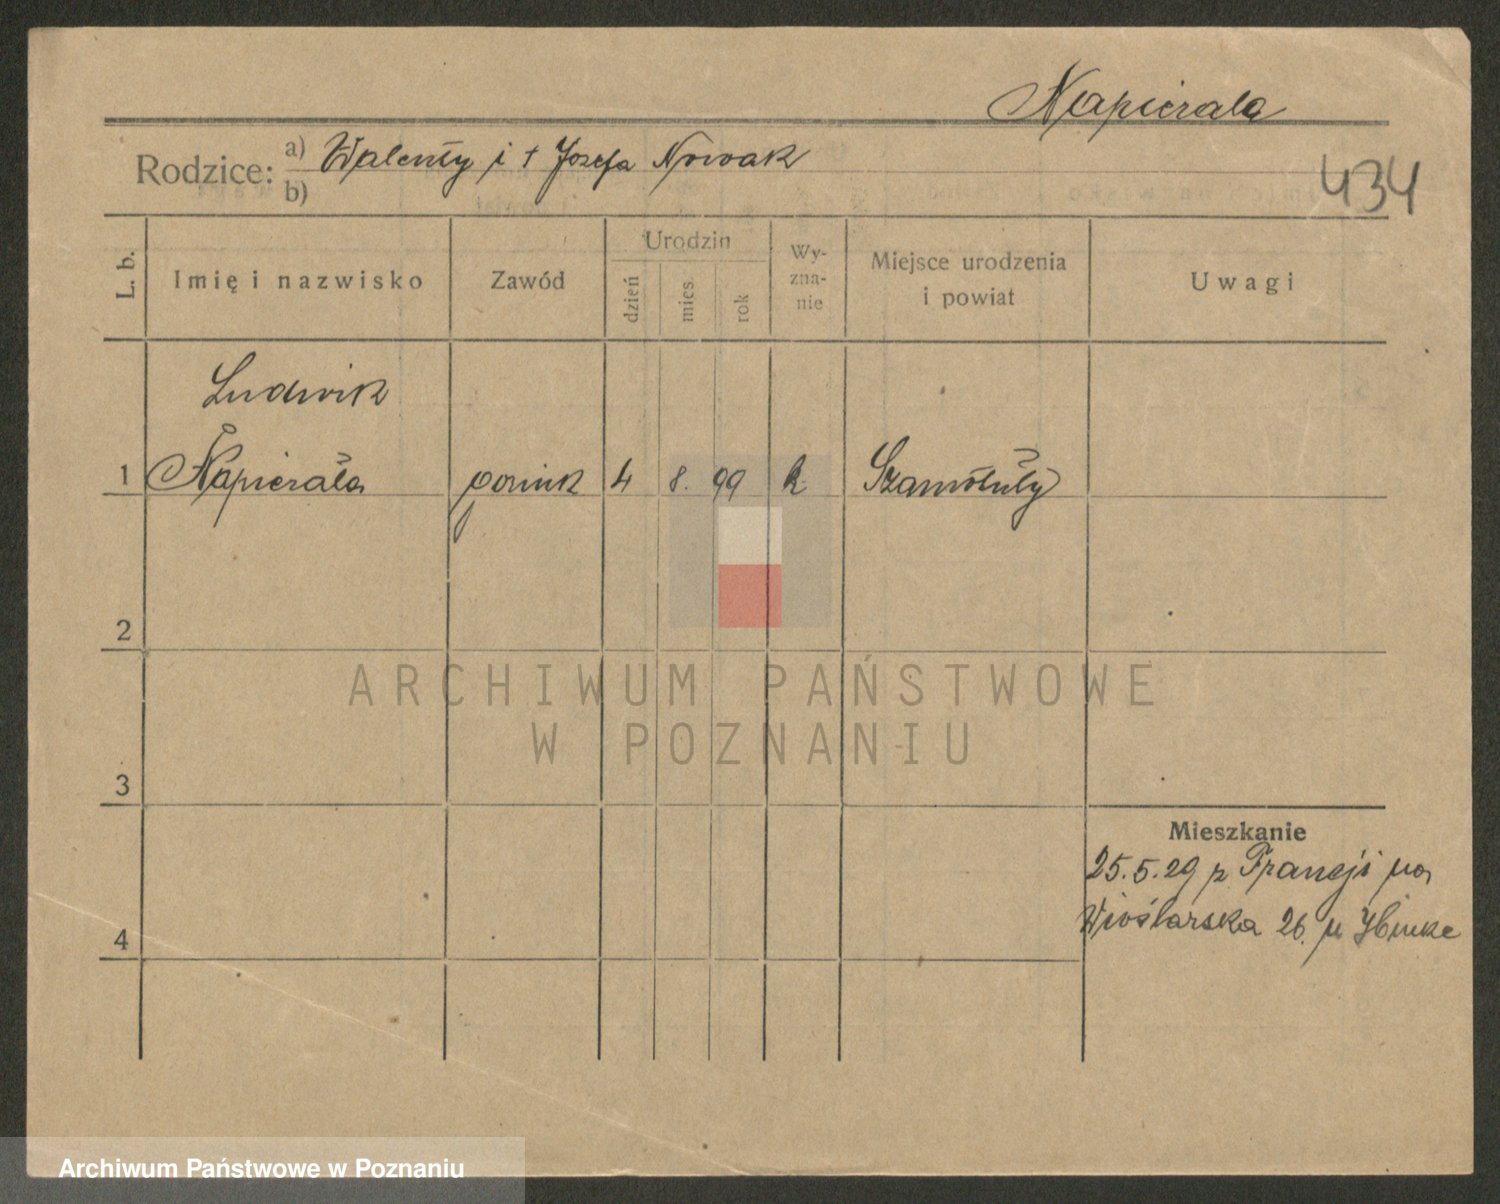 Napierała
Rodzice: a) Walenty i + Józefa Nowak
b)
434
L. b. Imię i nazwisko Zawód Urodzin dzień mies. rok Wy-zna-nie Miejsce urodzenia i powiat Uwagi
Ludwik
1 Napierała 4 8. 99 k. Szamotuły
2
3
4
Mieszkanie
25.5.29 z Francji na
Wioślarska 26. u
ARCHIWUM PAŃSTWOWE
W POZNANIU
Archiwum Państwowe w Poznaniu